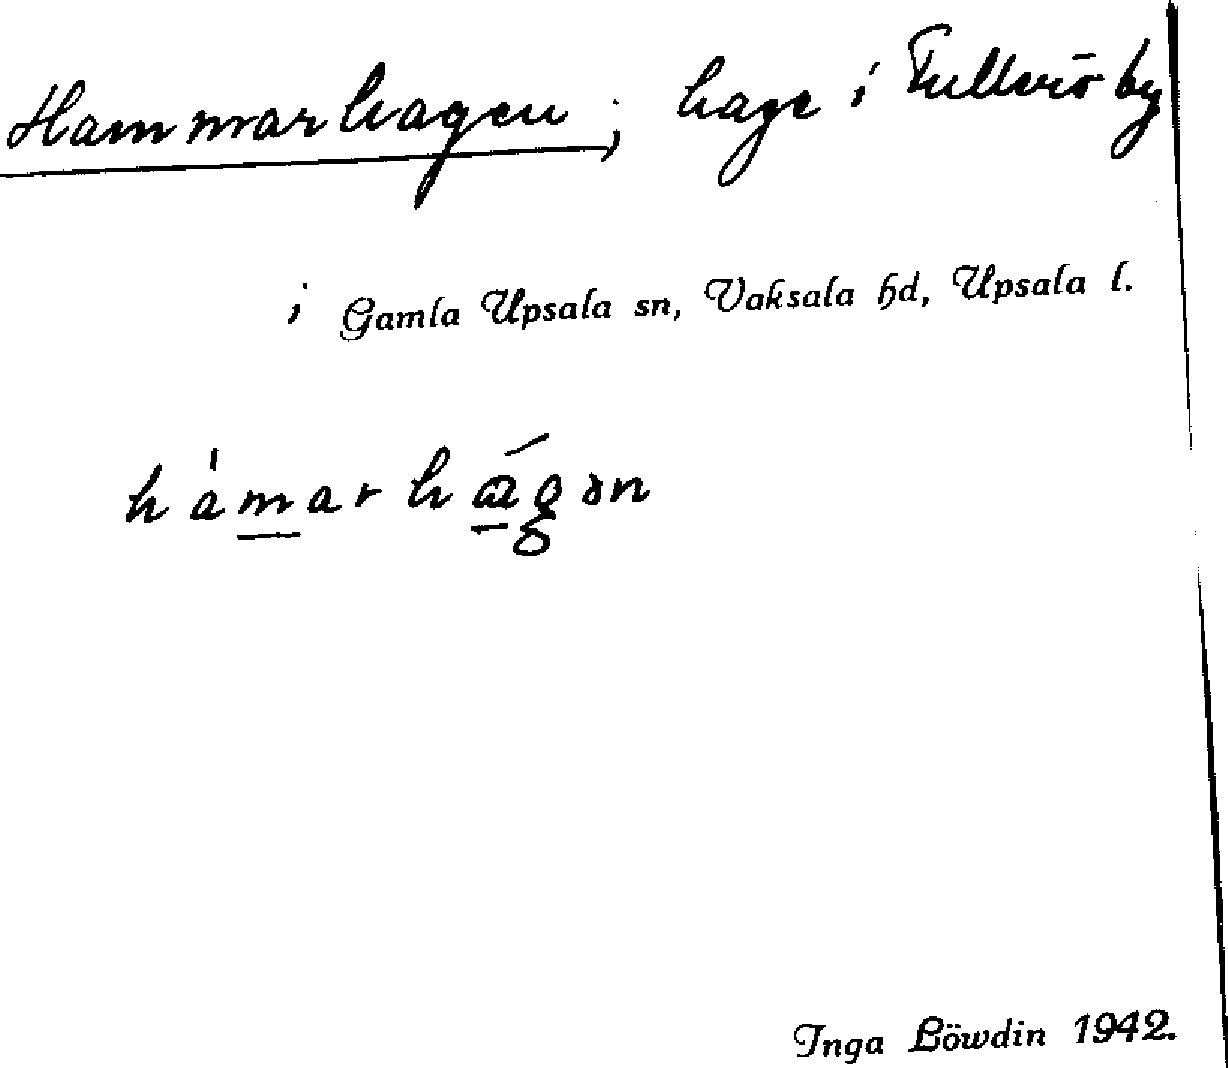 Hammarhagen; hage i Fullerö by
i Gamla Upsala sn, Vaksala hd, Upsala l.
hamarhagən
Inga Löwdin 1942.